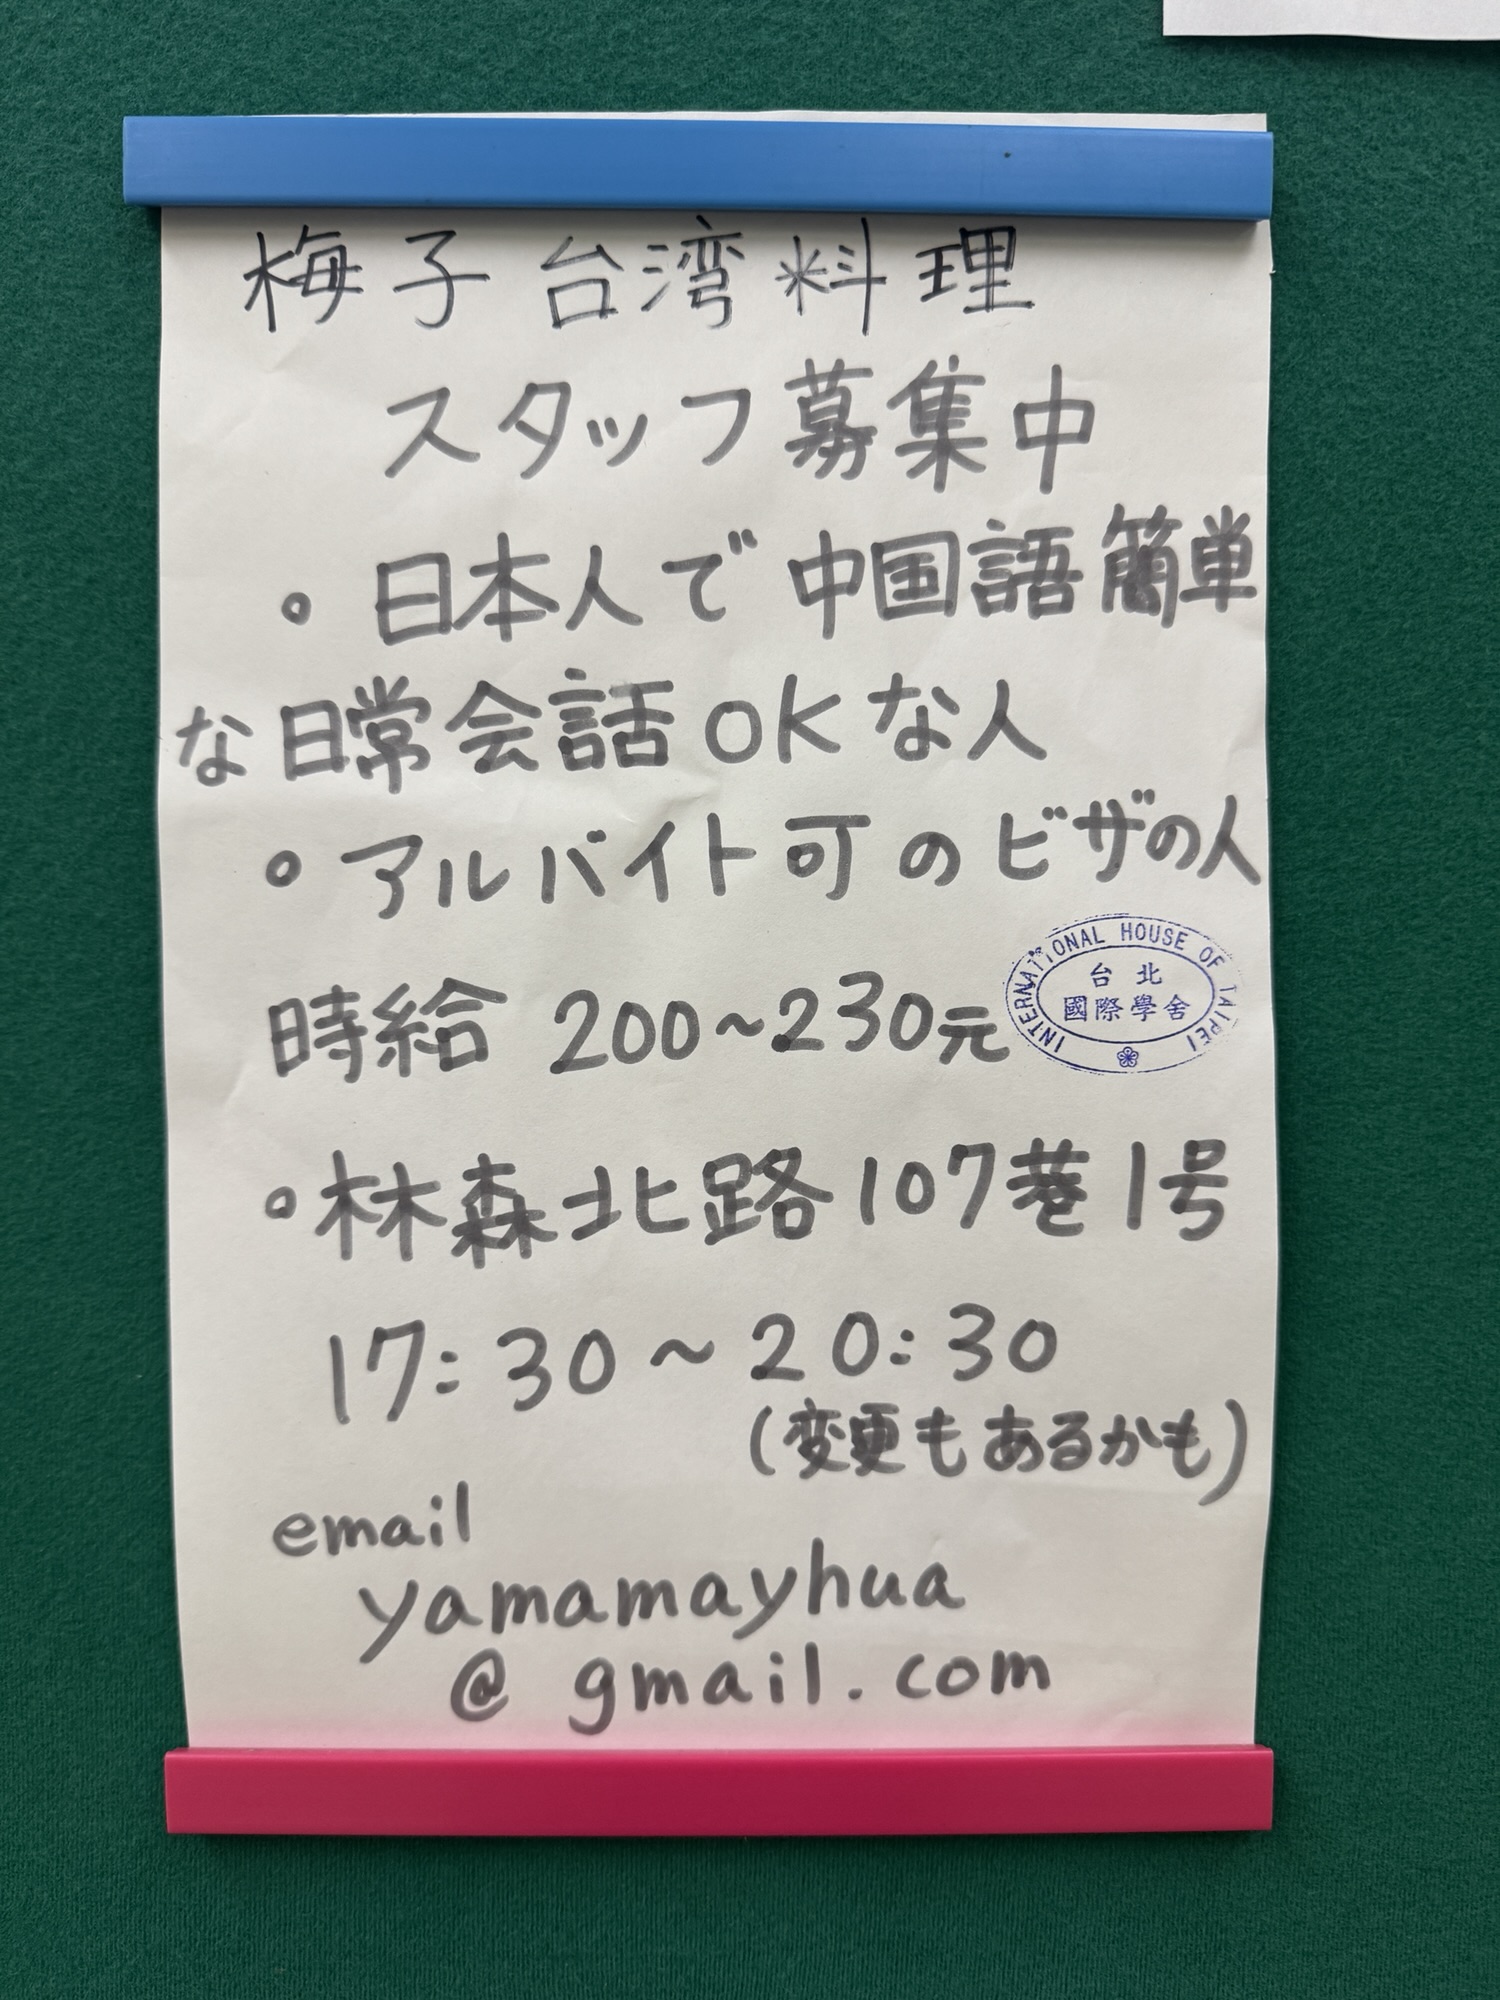 梅子台湾料理
スタッフ募集中
。日本人で中国語簡単
な日常会話OKな人
。アルバイト可のビザの人
INTERNATIONAL HOUSE OF TAIPEI
台北
國際學舍
時給 200~230元
。林森北路107巷1号
17:30~20:30
(変更もあるかも)
email
yamamayhua
@gmail.com